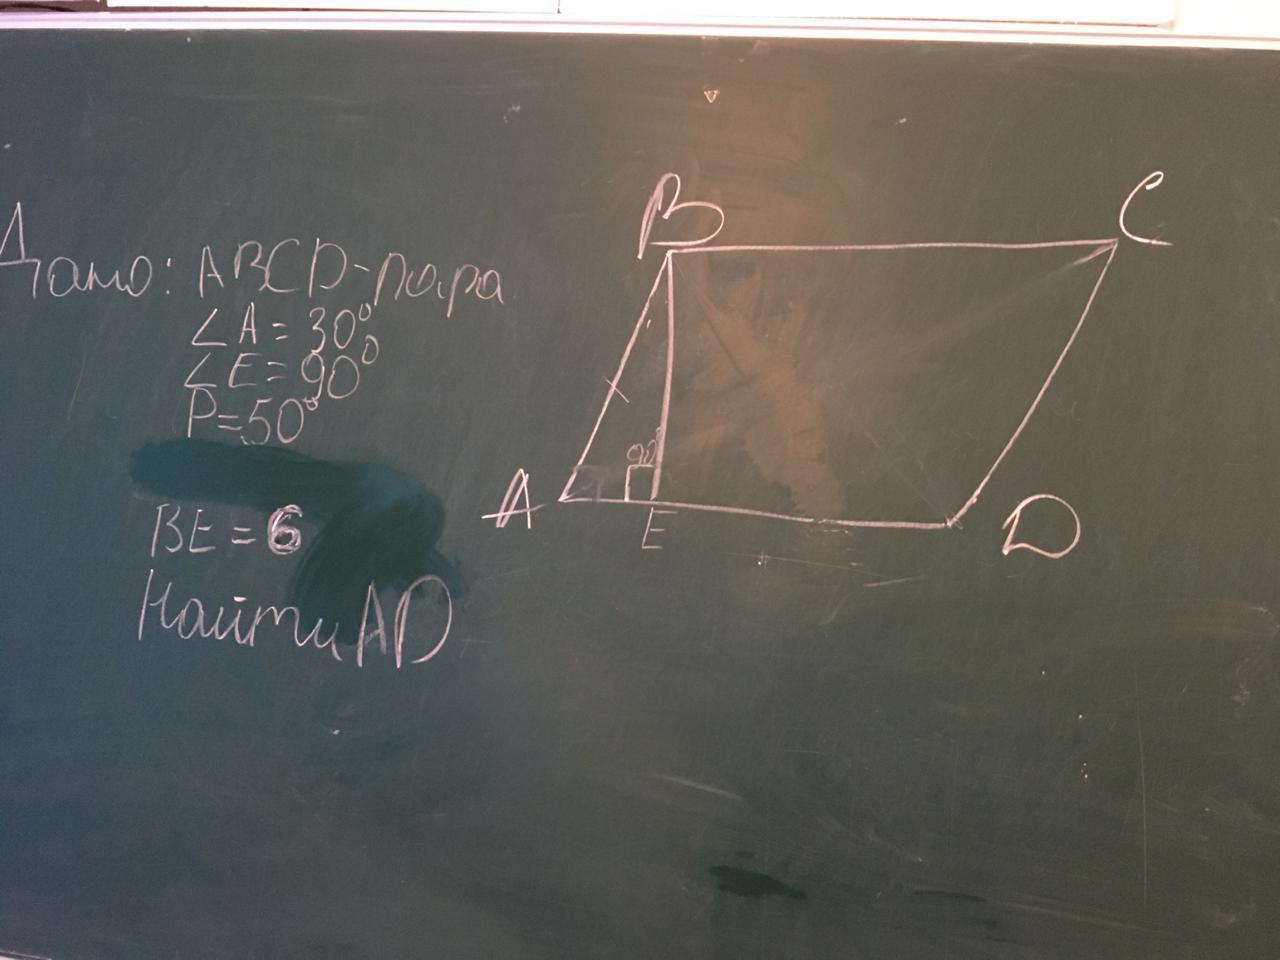 Дано: ABCD-пара
∠A = 30°
∠E = 90°
P=50°
BE = 6
Найти AD
B
C
90°
A
E
D